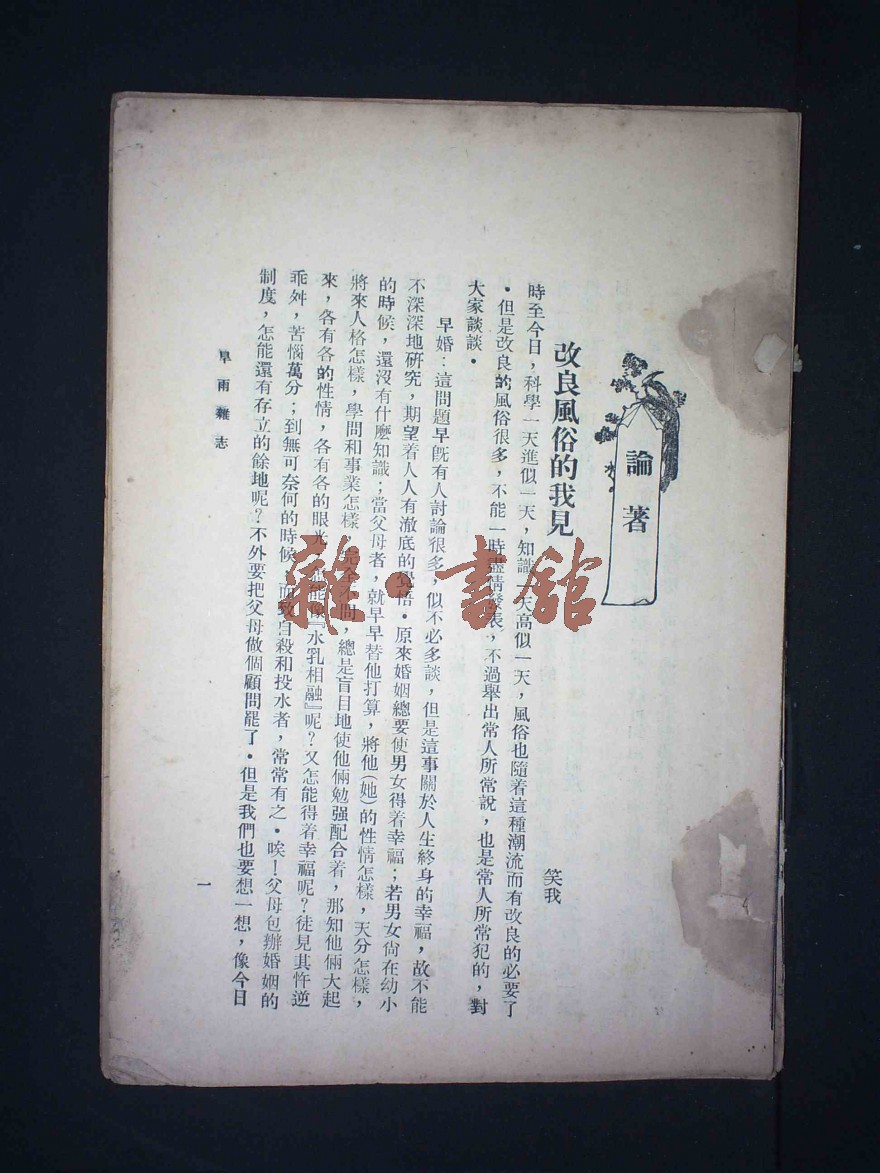 論著
改良風俗的我見
笑我
時至今日，科學一天進似一天，知識一天高似一天，風俗也隨着這種潮流而有改良的必要了
・但是改良的風俗很多，不能一時盡情發表，不過舉出常人所常說，也是常人所常犯的，對
大家談談・
早婚：這問題早既有人討論很多，似不必多談，但是這事關於人生終身的幸福，故不能
不深深地研究，期望着人人有澈底的覺悟・原來婚姻總要使男女得着幸福；若男女尙在幼小
的時候，還沒有什麽知識；當父母者，就早早替他打算，將他(她)的性情怎樣，天分怎樣，
將來人格怎樣，學問和事業怎樣，完全不問，總是盲目地使他倆勉强配合着，那知他倆大起
來，各有各的性情，各有各的眼光，能像『水乳相融』呢？又怎能得着幸福呢？徒見其忤逆
乖舛，苦惱萬分；到無可奈何的時候，而致自殺和投水者，常常有之・唉！父母包辦婚姻的
制度，怎能還有存立的餘地呢？不外要把父母做個顧問罷了・但是我們也要想一想，像今日
旱雨雜志
一
雜・書舘